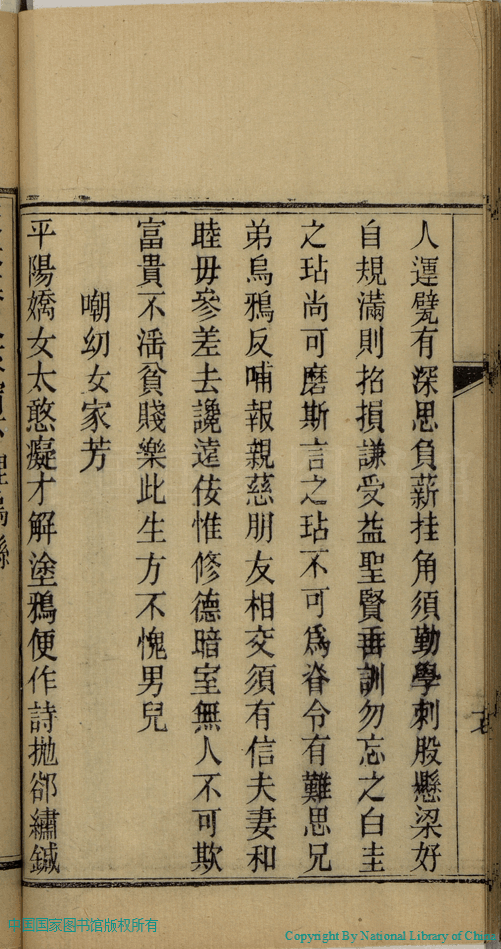 人運甓有深思負薪挂角須勤學刺股懸梁好
自規滿則招損謙受益聖賢垂訓勿忘之白圭
之玷尚可磨斯言之玷不可爲脊令有難思兄
弟烏鴉反哺報親慈朋友相交須有信夫妻和
睦毋參差去讒遠佞惟修德暗室無人不可欺
富貴不淫貧賤樂此生方不愧男兒
嘲幼女家芳
平陽嬌女太憨癡才解塗鴉便作詩拋卻繡鍼
中国国家图书馆版权所有
Copyright By National Library of China